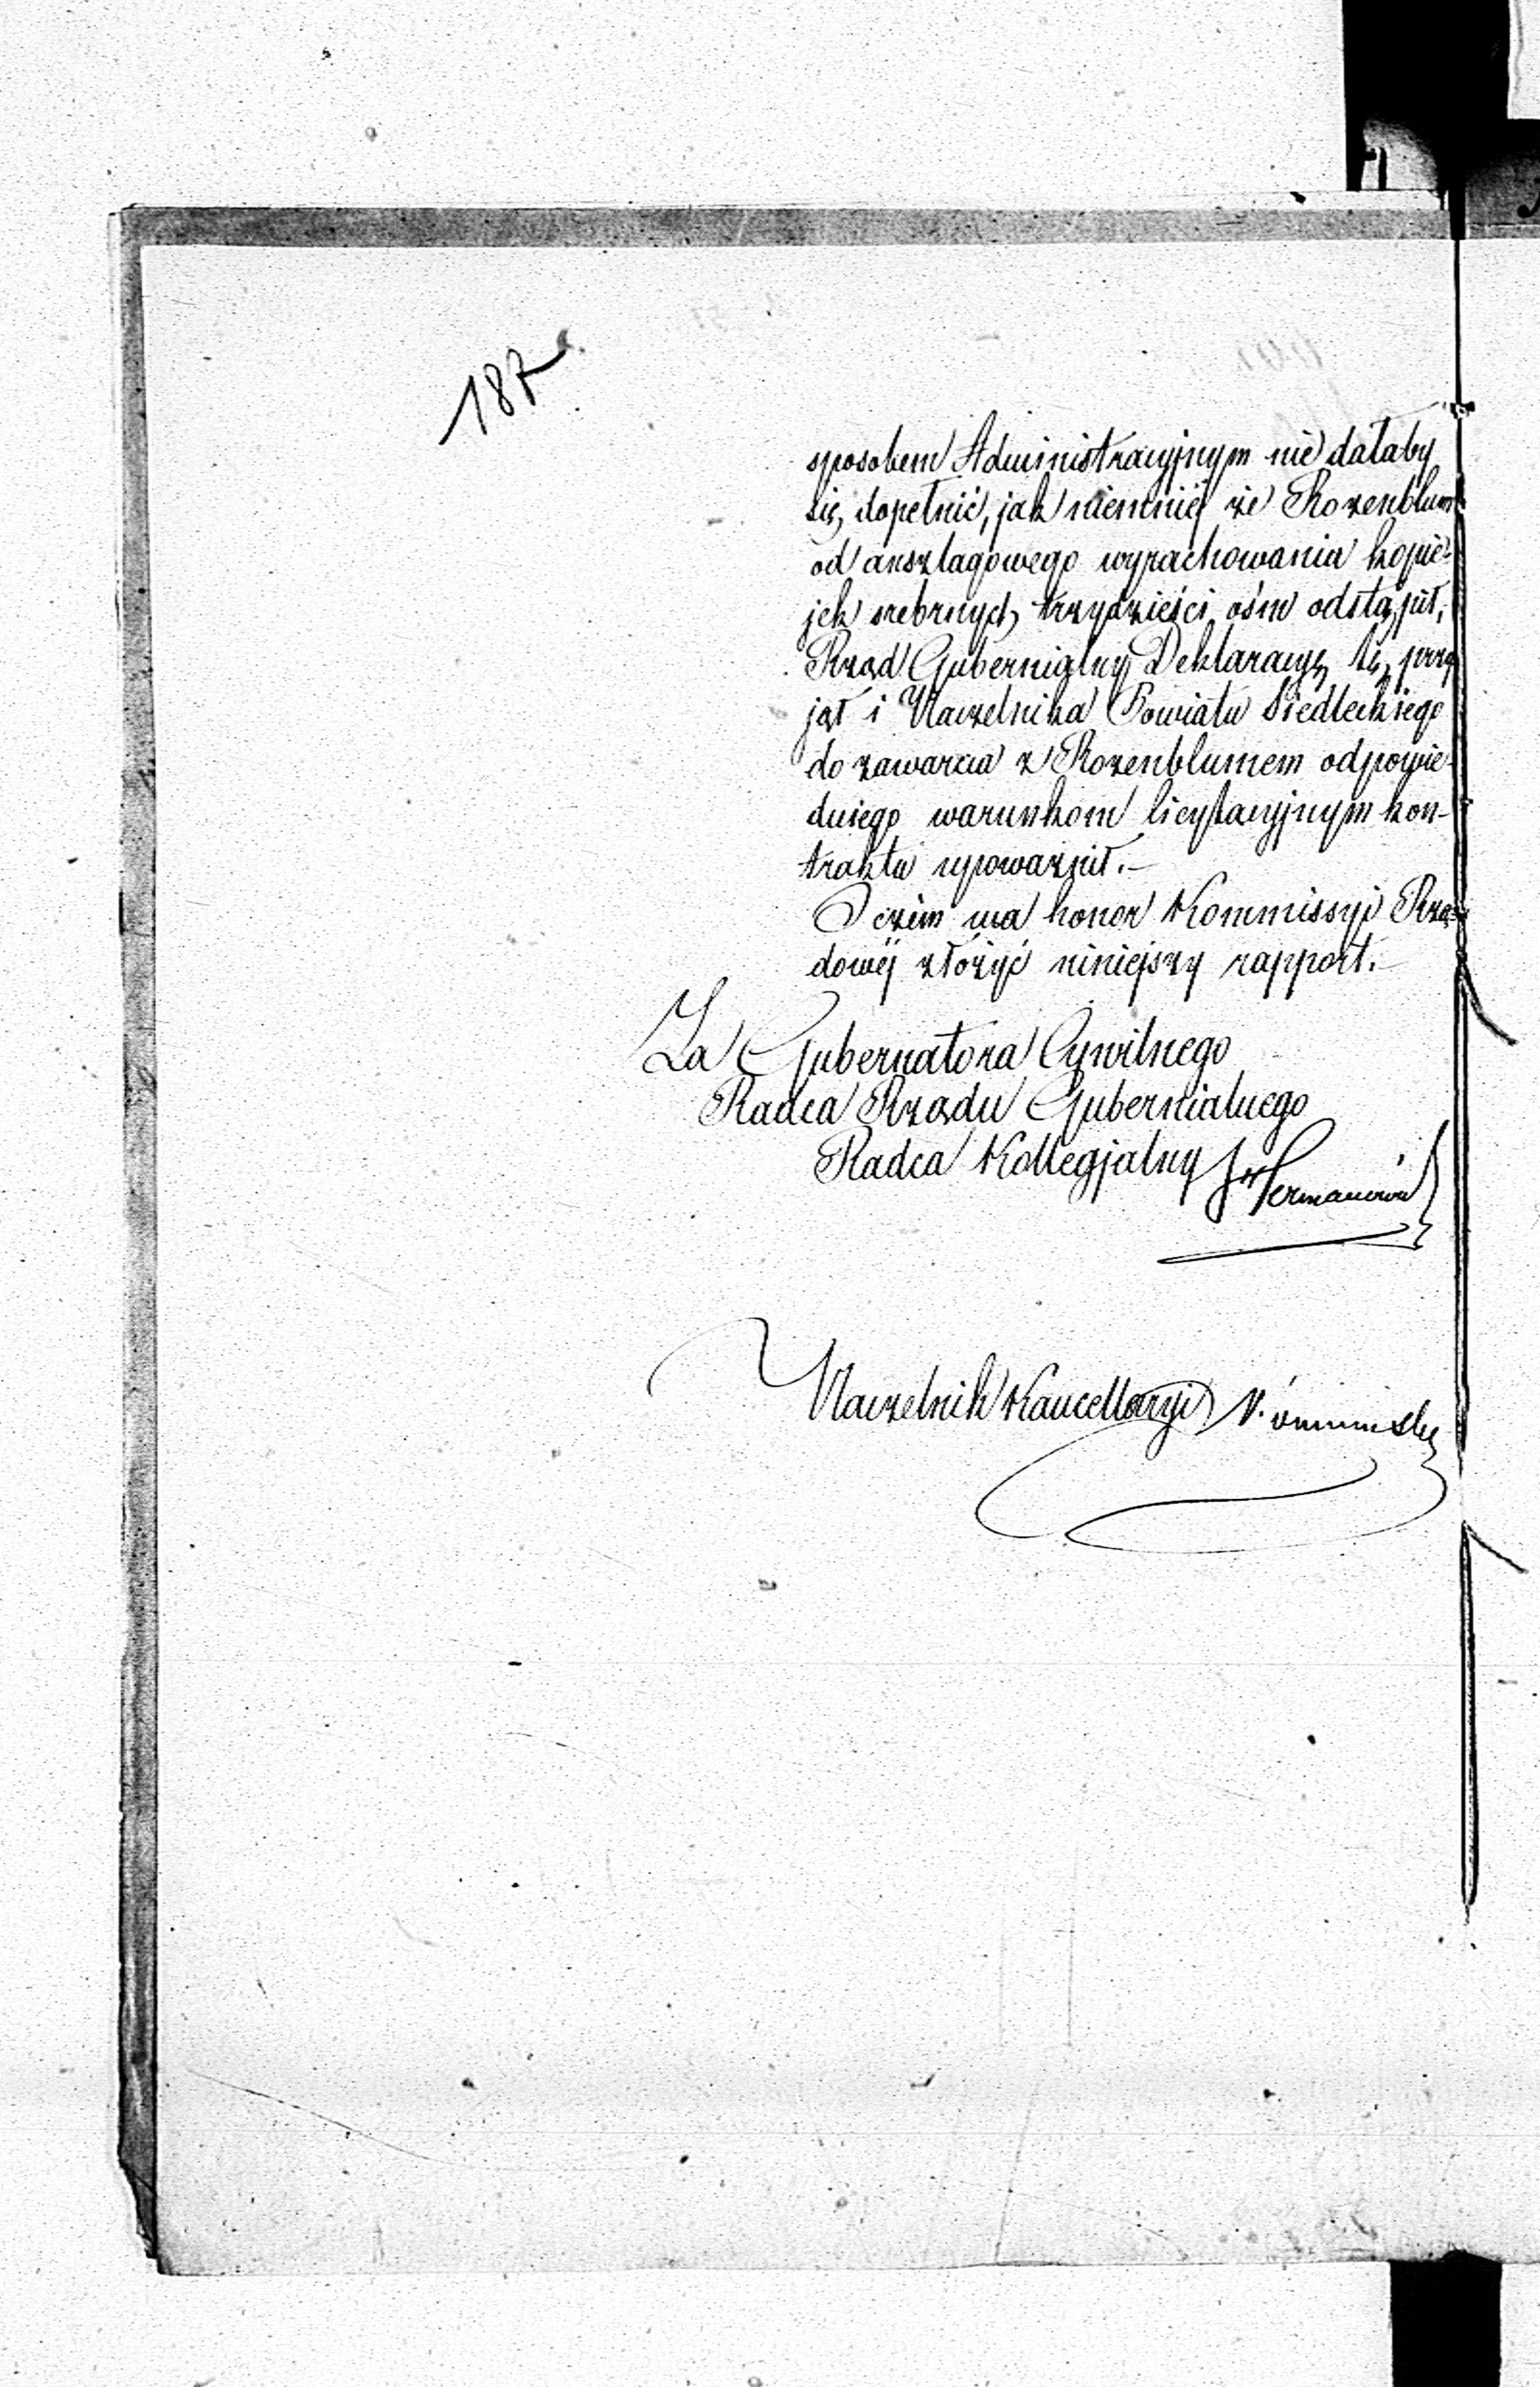 187
sposobem Administracyjnym nie dałaby
się dopełnić, jak niemniéj że Rozenblum
od anszlagowego wyrachowania kopie-
jek srebrnych trzydzieści ośm odstąpił,
Rząd Gubernialny Deklaracyę tę przy
jął i Naczelnika Powiatu Siedleckiego
do zawarcia z Rozenblumem odpowie-
dniego warunkom licytacyjnym kon-
traktu upoważnił.—
O czém ma honor Kommissyi Rzą-
dowéj złożyć niniejszy rapport.—
Za Gubernatora Cywilnego
Radca Rządu Gubernialnego
Radca Kollegjalny
Naczelnik Kancellaryi